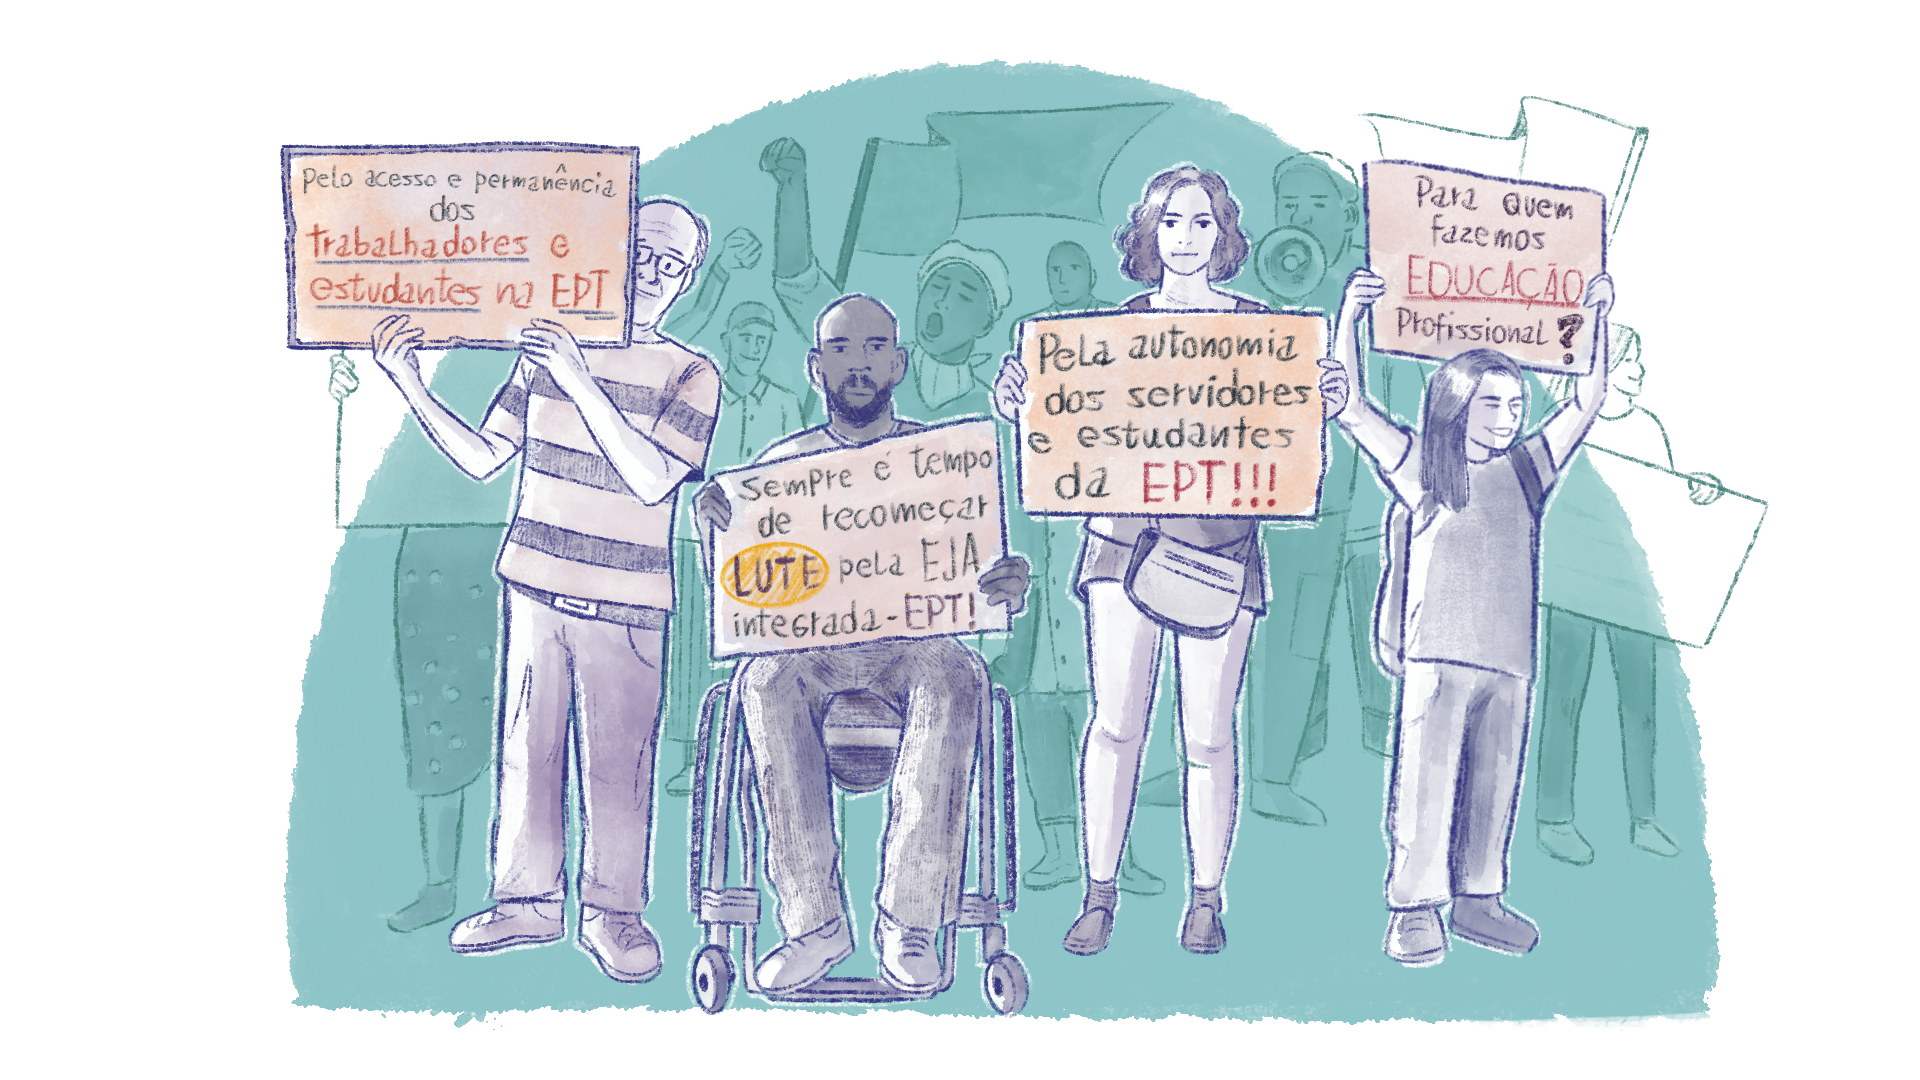 Pelo acesso e permanência
dos
trabalhadores e
estudantes na EPT
Sempre é tempo
de recomeçar
LUTE pela EJA
integrada-EPT!
Pela autonomia
dos servidores
e estudantes
da EPT!!!
Para quem
fazemos
EDUCAÇÃO
Profissional?